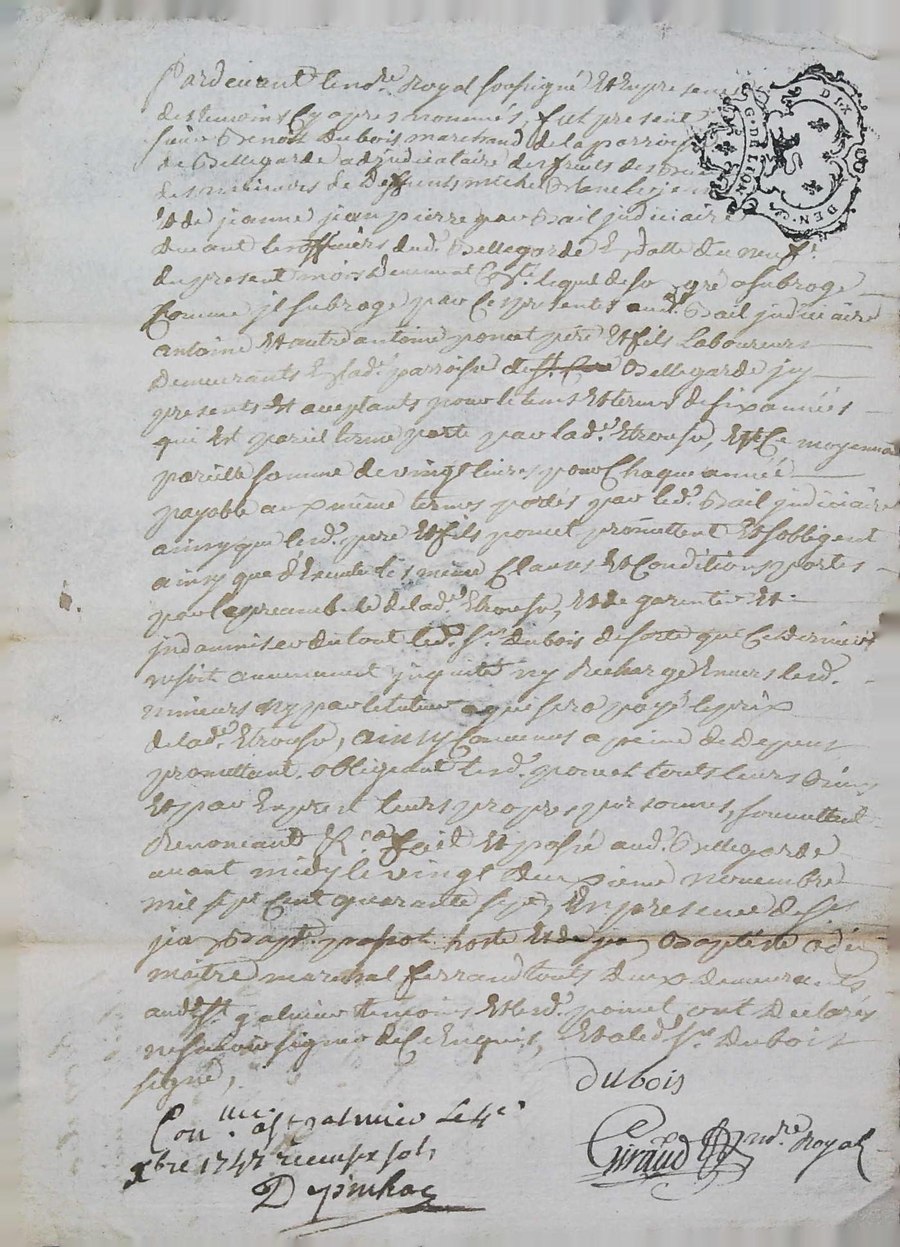 Pardevant le nore Royal soussigné Et En presence
des temoins Cy apres nommés, fut present
sieur Benoit dubois marchand de la parroisse
de Bellegarde adjudicataire des fruits des
des mineurs de Deffunts michel
Et de jeanne jean pierre par Bail judiciaire
Devant les officiers dud. Bellegarde En datte du neuf
du present mois Dument Cllé lequel de son gré a subrogé
Comme jl subroge par Ces presentes aud. Bail judiciaire
antoine Et autre antoine poncet pere Et fils Laboureurs
Demeurants En lad. parroisse de Bellegarde jcy
presents Et aceptants pour le tems Et terme de six années
qui Est pareil terme porté par lad. Etrousse, Et Ce moyenna
pareille somme de vingt livres pour Chaque année
payable aux même termes portés par led. Bail judiciaire
ainsy que lesd. pere Et fils poncet promettent Et s'obligent
ainsy que d'Executer les même Clauses Et Conditions portés
par le preambule de lad. Etrousse, Et de garentir Et
jndamniser du tout led. sr. dubois de sorte que Ce dernier
ne soit aucunement jnquieté ny Rechergé Envers lesd.
mineurs ny par le tuteur a qui sera payé le prix
de lad. Etrousse, ainsy Convenus a peine de Depens
promettant obligeant lesd. poncet touts leurs Biens
Et par Exprest leurs propres personnes, soumettant
Renonceant &ca fait Et passé aud. Bellegarde
avant midy le vingt deuxieme novembre
mil sept Cent quarante sept, En presence de srs
jean Bapt. hoste Et de jean Baptiste
maitre marechal ferrand touts deux demeurants
aud. st galmier temoins Et lesd. poncet ont Declarés
ne scavoir signer de Ce Enquis, Et a led. sr. Dubois
signé,
dubois
Giraud nore Royal
Con.llé a st galmier le 4e
Xbre 1747 Receu six sols
G. DE LION
DEN.
DIX